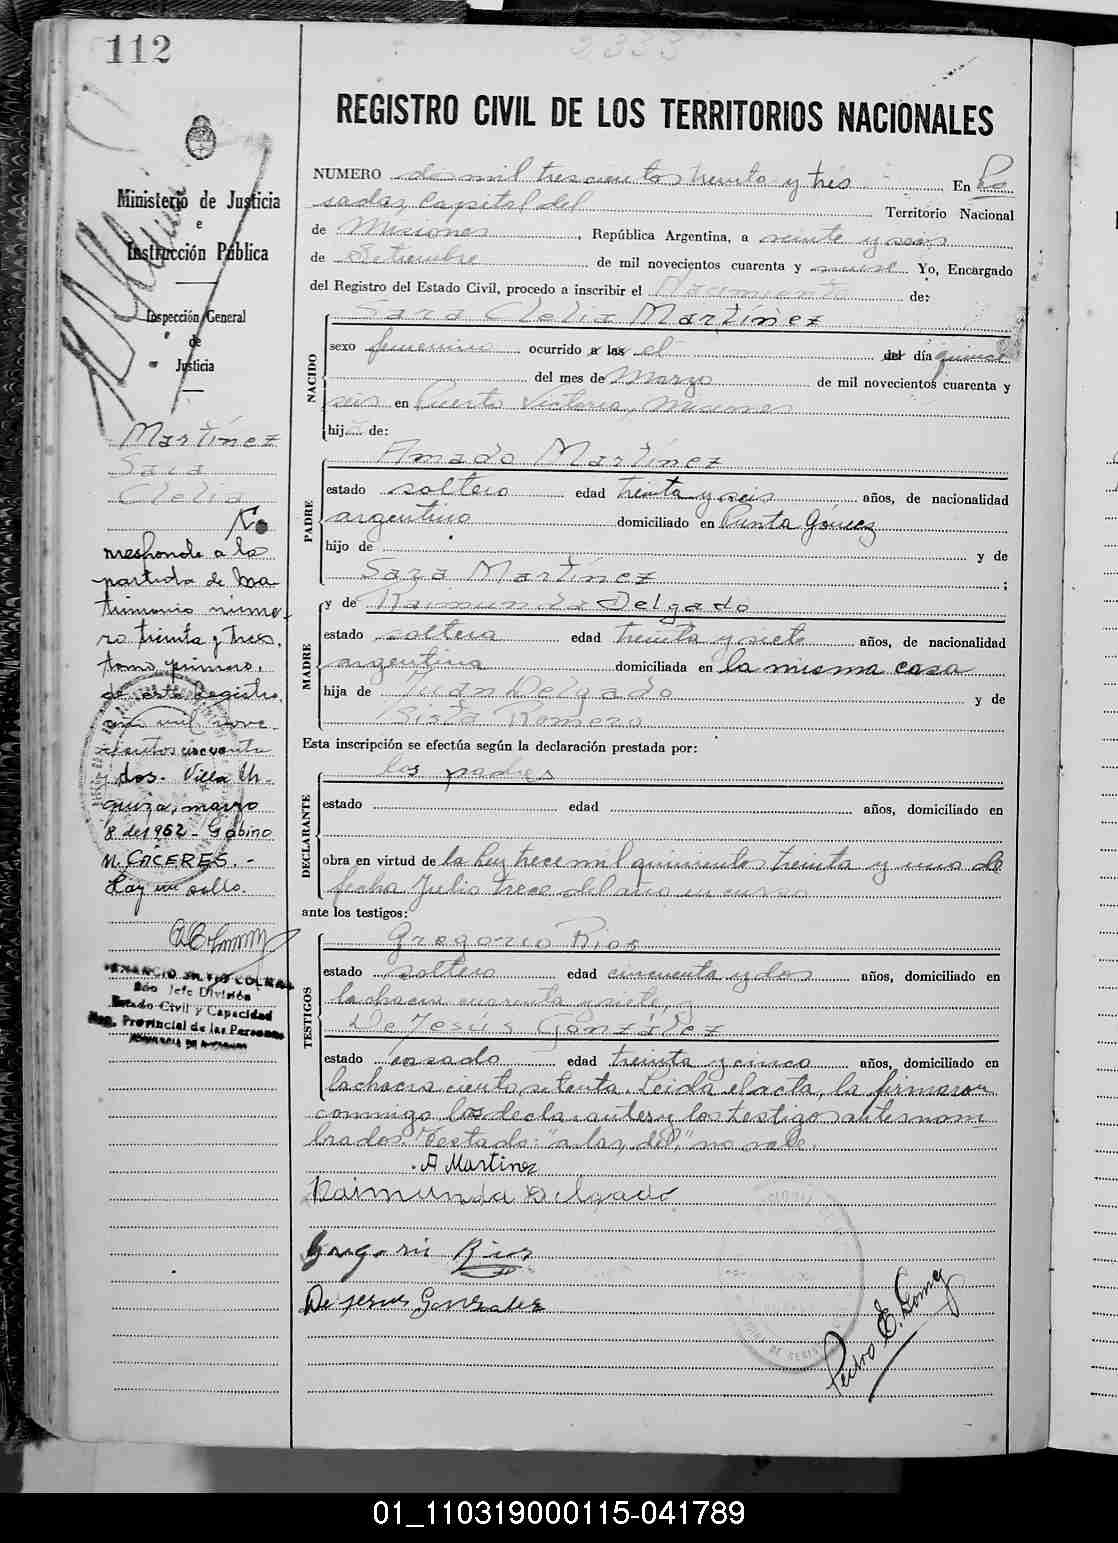 112
2333
REGISTRO CIVIL DE LOS TERRITORIOS NACIONALES
Ministerio de Justicia
e
Instrucción Pública
Inspección General
de
Justicia
Martínez
Sara
Clelia
Co
rresponde a la
partida de ma
trimonio núme-
ro treinta y tres,
tomo primero,
de este Registro
año mil nove-
cientos cincuenta
y dos. Villa Ur-
quiza, marzo
8 de 1962 - Gabino
M. CACERES. -
Hay un sello.
VENANCIO SILVIO COLMAN
2do Jefe División
Estado Civil y Capacidad
Reg. Provincial de las Personas
NUMERO dos mil trescientos treinta y tres En Po
sadas, Capital del Territorio Nacional
de Misiones, República Argentina, a veinte y seis
de Setiembre de mil novecientos cuarenta y nueve Yo, Encargado
del Registro del Estado Civil, procedo a inscribir el Nacimiento de:
NACIDO
Sara Clelia Martínez
sexo femenino ocurrido a las el del día quince
del mes de Marzo de mil novecientos cuarenta y
seis en Puerto Victoria, Misiones
hij de:
PADRE
Amado Martínez
estado soltero edad treinta y seis años, de nacionalidad
argentino domiciliado en Punta Gómez
hijo de y de
Sara Martínez ;
MADRE
y de Raimunda Delgado
estado soltera edad treinta y siete años, de nacionalidad
argentina domiciliada en la misma casa
hija de Juan Delgado y de
Sista Romero
Esta inscripción se efectúa según la declaración prestada por:
DECLARANTE
los padres
estado edad años, domiciliado en
obra en virtud de la ley trece mil quinientos treinta y uno de
fecha Julio trece del año en curso
ante los testigos:
TESTIGOS
Gregorio Rios
estado soltero edad cincuenta y dos años, domiciliado en
la chacra cuarenta y siete, y
De Jesús González
estado casado edad treinta y cinco años, domiciliado en
la chacra ciento setenta. Leída el acta, la firmaron
conmigo los declarantes y los testigos antenom
brados. Testado: "a las, del," no vale.
A Martinez
Raimunda Delgado
Gregorio Rios
De Jesus Gonzalez
Pedro E. Gomez
01_110319000115-041789